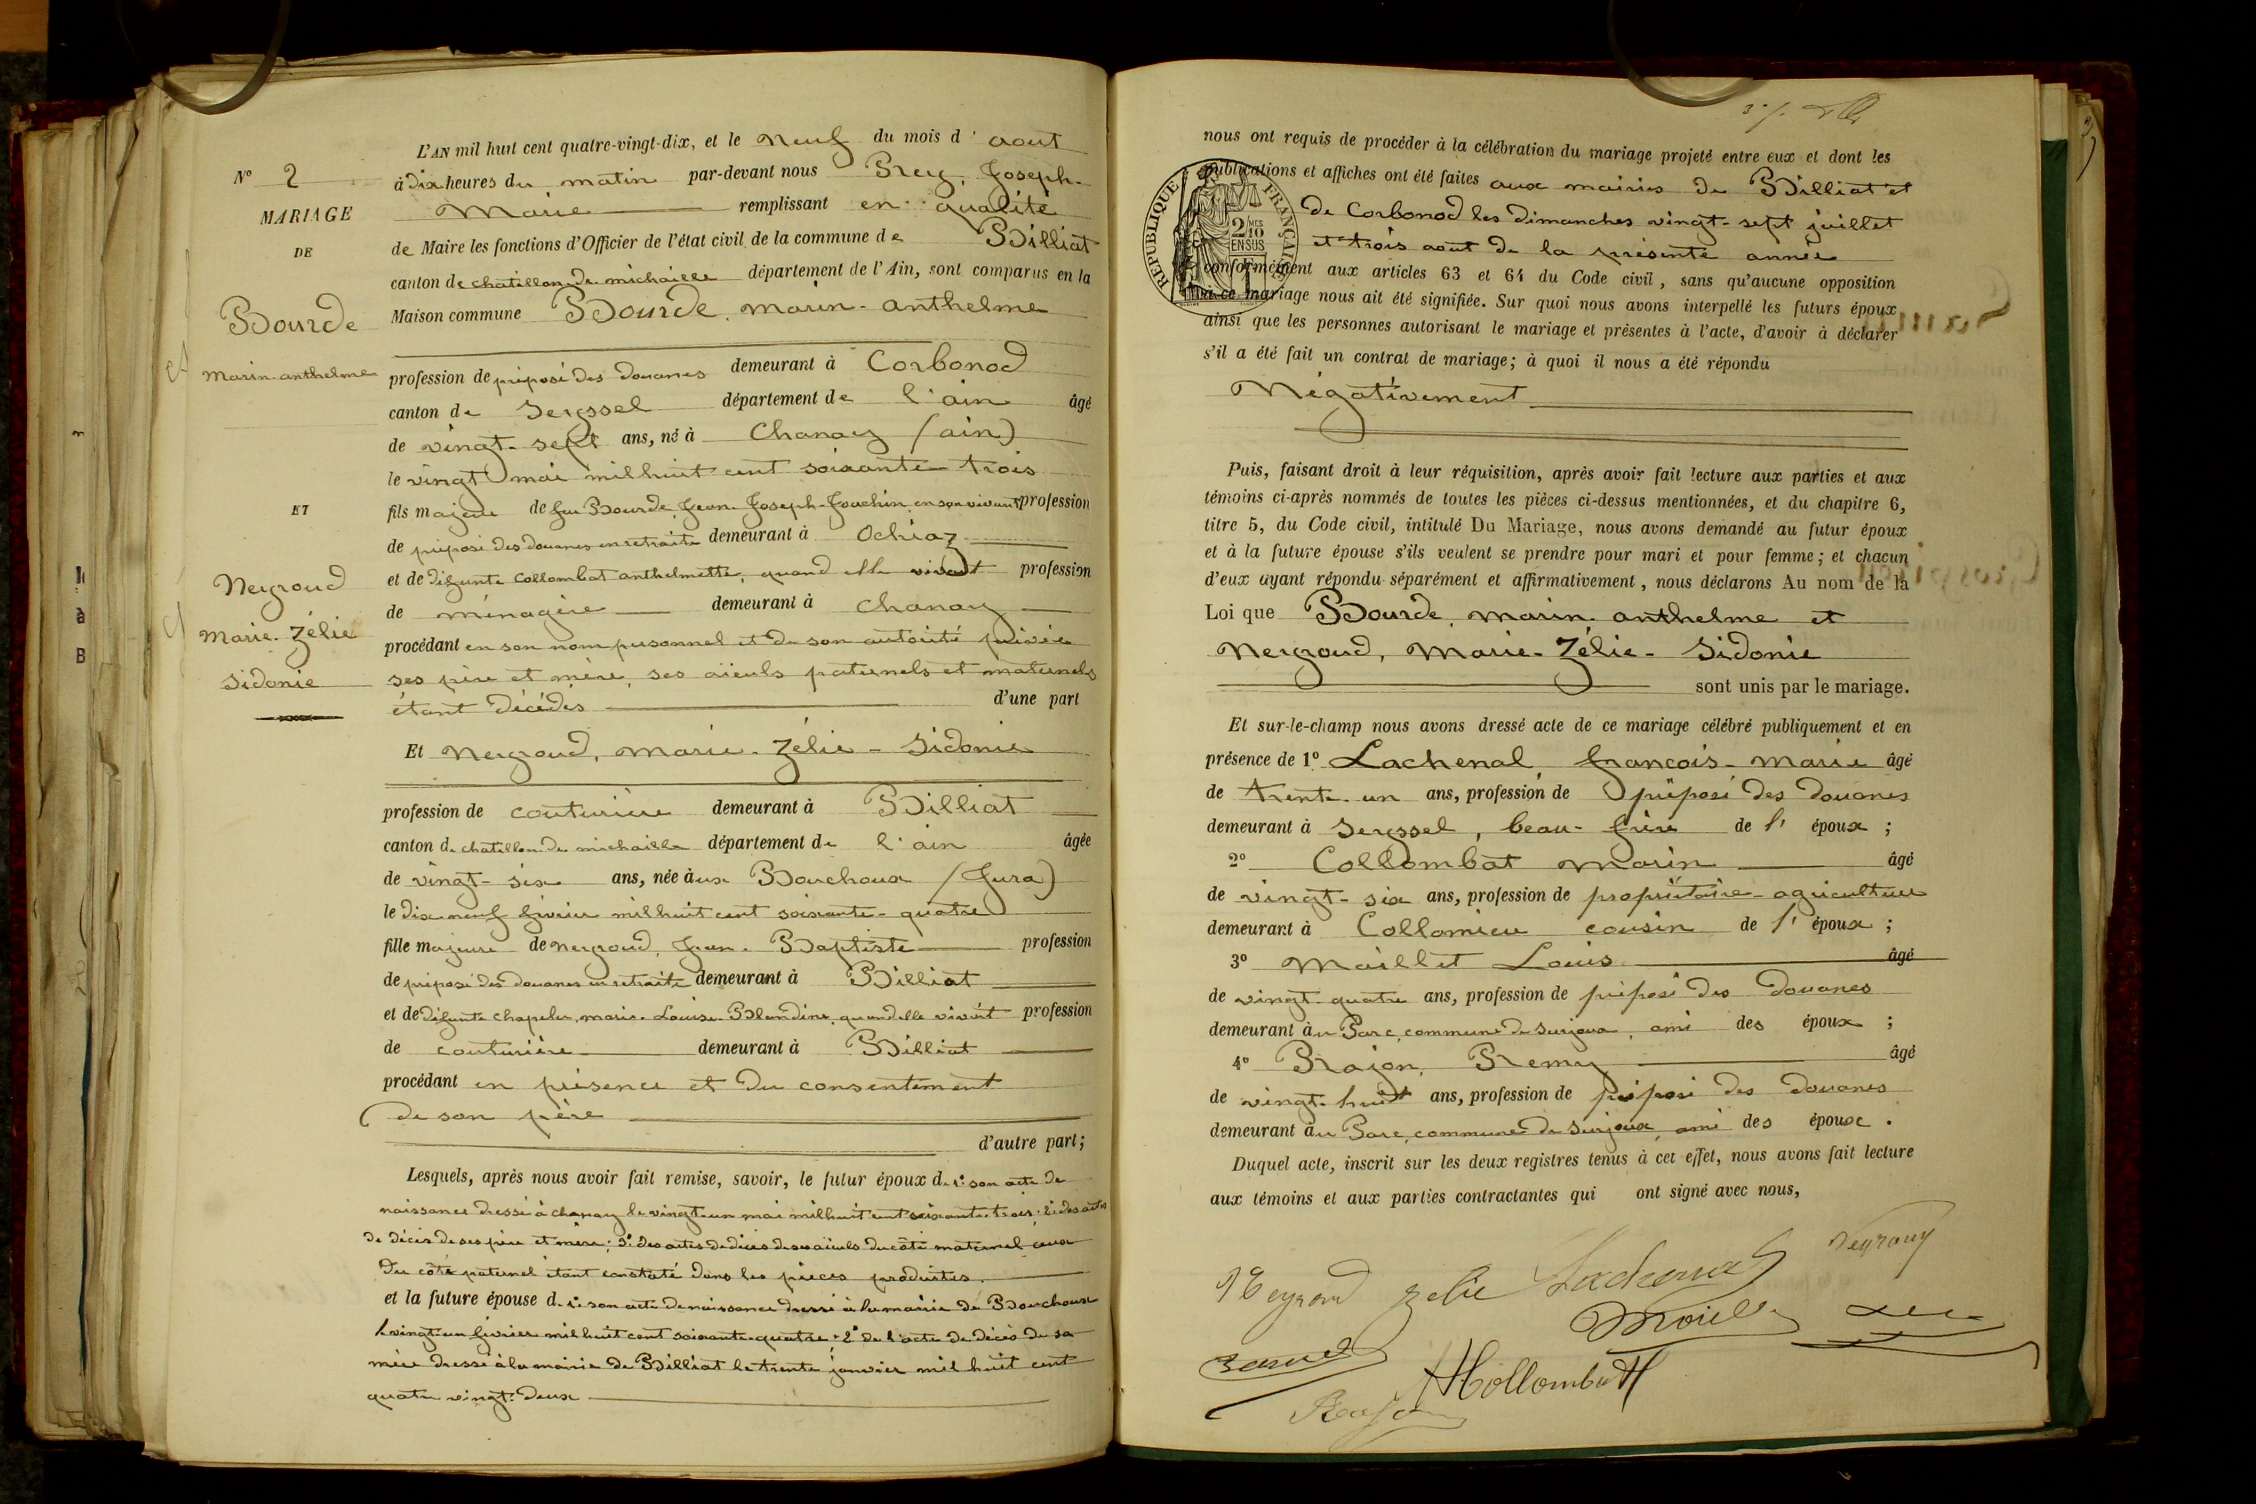 L'AN mil huit cent quatre-vingt-dix, et le neuf du mois d' aout
N° 2
à dix heures du matin par-devant nous Prey, Joseph-
MARIAGE
Marie remplissant en qualité
de Maire les fonctions d'Officier de l'état civil de la commune de Billiat
DE
canton de chatillon de michaille département de l'Ain, sont comparus en la
Bourde
Maison commune Bourde, marin-anthelme
marin-anthelme
profession de préposé des douanes demeurant à Corbonod
canton de Seyssel département de l'ain âgé
de vingt-sept ans, né à Chanay (ain)
le vingt mai mil huit cent soixante trois
ET
fils majeur de feu Bourde, Jean-Joseph-Joachin, en son vivant profession
de préposé des douanes en retraite demeurant à Ochiaz
Neyroud
et de défunte Collombat anthelmette, quand elle vivait profession
de ménagère demeurant à Chanay
Marie-Zélie
procédant en son nom personnel et de son autorité privée
Sidonie
ses père et mère, ses aïeuls paternels et maternels
étant décédés d'une part
Et Neyroud, Marie-Zélie-Sidonie
profession de couturière demeurant à Billiat
canton de chatillon de michaille département de l'ain âgée
de vingt-six ans, née à ux Bouchoux (Jura)
le dix neuf février mil huit cent soixante-quatre
fille majeure de neyroud, Jean-Baptiste profession
de préposé des douanes en retraite demeurant à Billiat
et de défunte Chapelu, marie-Louise-Blandine, quand elle vivait profession
de couturière demeurant à Billiat
procédant en présence et du consentement
de son père
d'autre part;
Lesquels, après nous avoir fait remise, savoir, le futur époux d. 1° son acte de
naissance dressé à chanay le vingt-un mai mil huit cent soixante-trois; 2° des actes
de décès de ses père et mère; 3° des actes de décès de ses aïeuls du côté maternel ceux
du côté paternel étant constaté dans les pièces produites.
et la future épouse d. 1° son acte de naissance dressé à la mairie de Bouchoux
le vingt-un février mil huit cent soixante-quatre; 2° de l'acte de décès de sa
mère dressé à la mairie de Billiat le trente janvier mil huit cent
quatre vingt-deux
nous ont requis de procéder à la célébration du mariage projeté entre eux et dont les
publications et affiches ont été faites aux mairies de Billiat et
de Corbonod les dimanches vingt-sept juillet
et trois aout de la présente année
RÉPUBLIQUE FRANÇAISE
2/10 MES EN SUS
conformément aux articles 63 et 64 du Code civil, sans qu'aucune opposition
à ce mariage nous ait été signifiée. Sur quoi nous avons interpellé les futurs époux
ainsi que les personnes autorisant le mariage et présentes à l'acte, d'avoir à déclarer
s'il a été fait un contrat de mariage; à quoi il nous a été répondu
Négativement
Puis, faisant droit à leur réquisition, après avoir fait lecture aux parties et aux
témoins ci-après nommés de toutes les pièces ci-dessus mentionnées, et du chapitre 6,
titre 5, du Code civil, intitulé Du Mariage, nous avons demandé au futur époux
et à la future épouse s'ils veulent se prendre pour mari et pour femme; et chacun
d'eux ayant répondu séparément et affirmativement, nous déclarons Au nom de la
Loi que Bourde, marin-anthelme et
Neyroud, Marie-Zélie-Sidonie
sont unis par le mariage.
Et sur-le-champ nous avons dressé acte de ce mariage célébré publiquement et en
présence de 1° Lachenal, françois-marie âgé
de trente-un ans, profession de préposé des douanes
demeurant à Seyssel, beau-frère de l' époux;
2° Collombat Marin âgé
de vingt-six ans, profession de propriétaire-agriculteur
demeurant à Collomieu cousin de l' époux;
3° Maillet Louis âgé
de vingt-quatre ans, profession de préposé des douanes
demeurant au Parc, commune de Surjoux, ami des époux;
4° Rajon, Remy âgé
de vingt-huit ans, profession de préposé des douanes
demeurant au Parc, commune de Surjoux, ami des époux.
Duquel acte, inscrit sur les deux registres tenus à cet effet, nous avons fait lecture
aux témoins et aux parties contractantes qui ont signé avec nous,
Neyroud Zelie Lachenal Neyroud
Collombat
Rajon